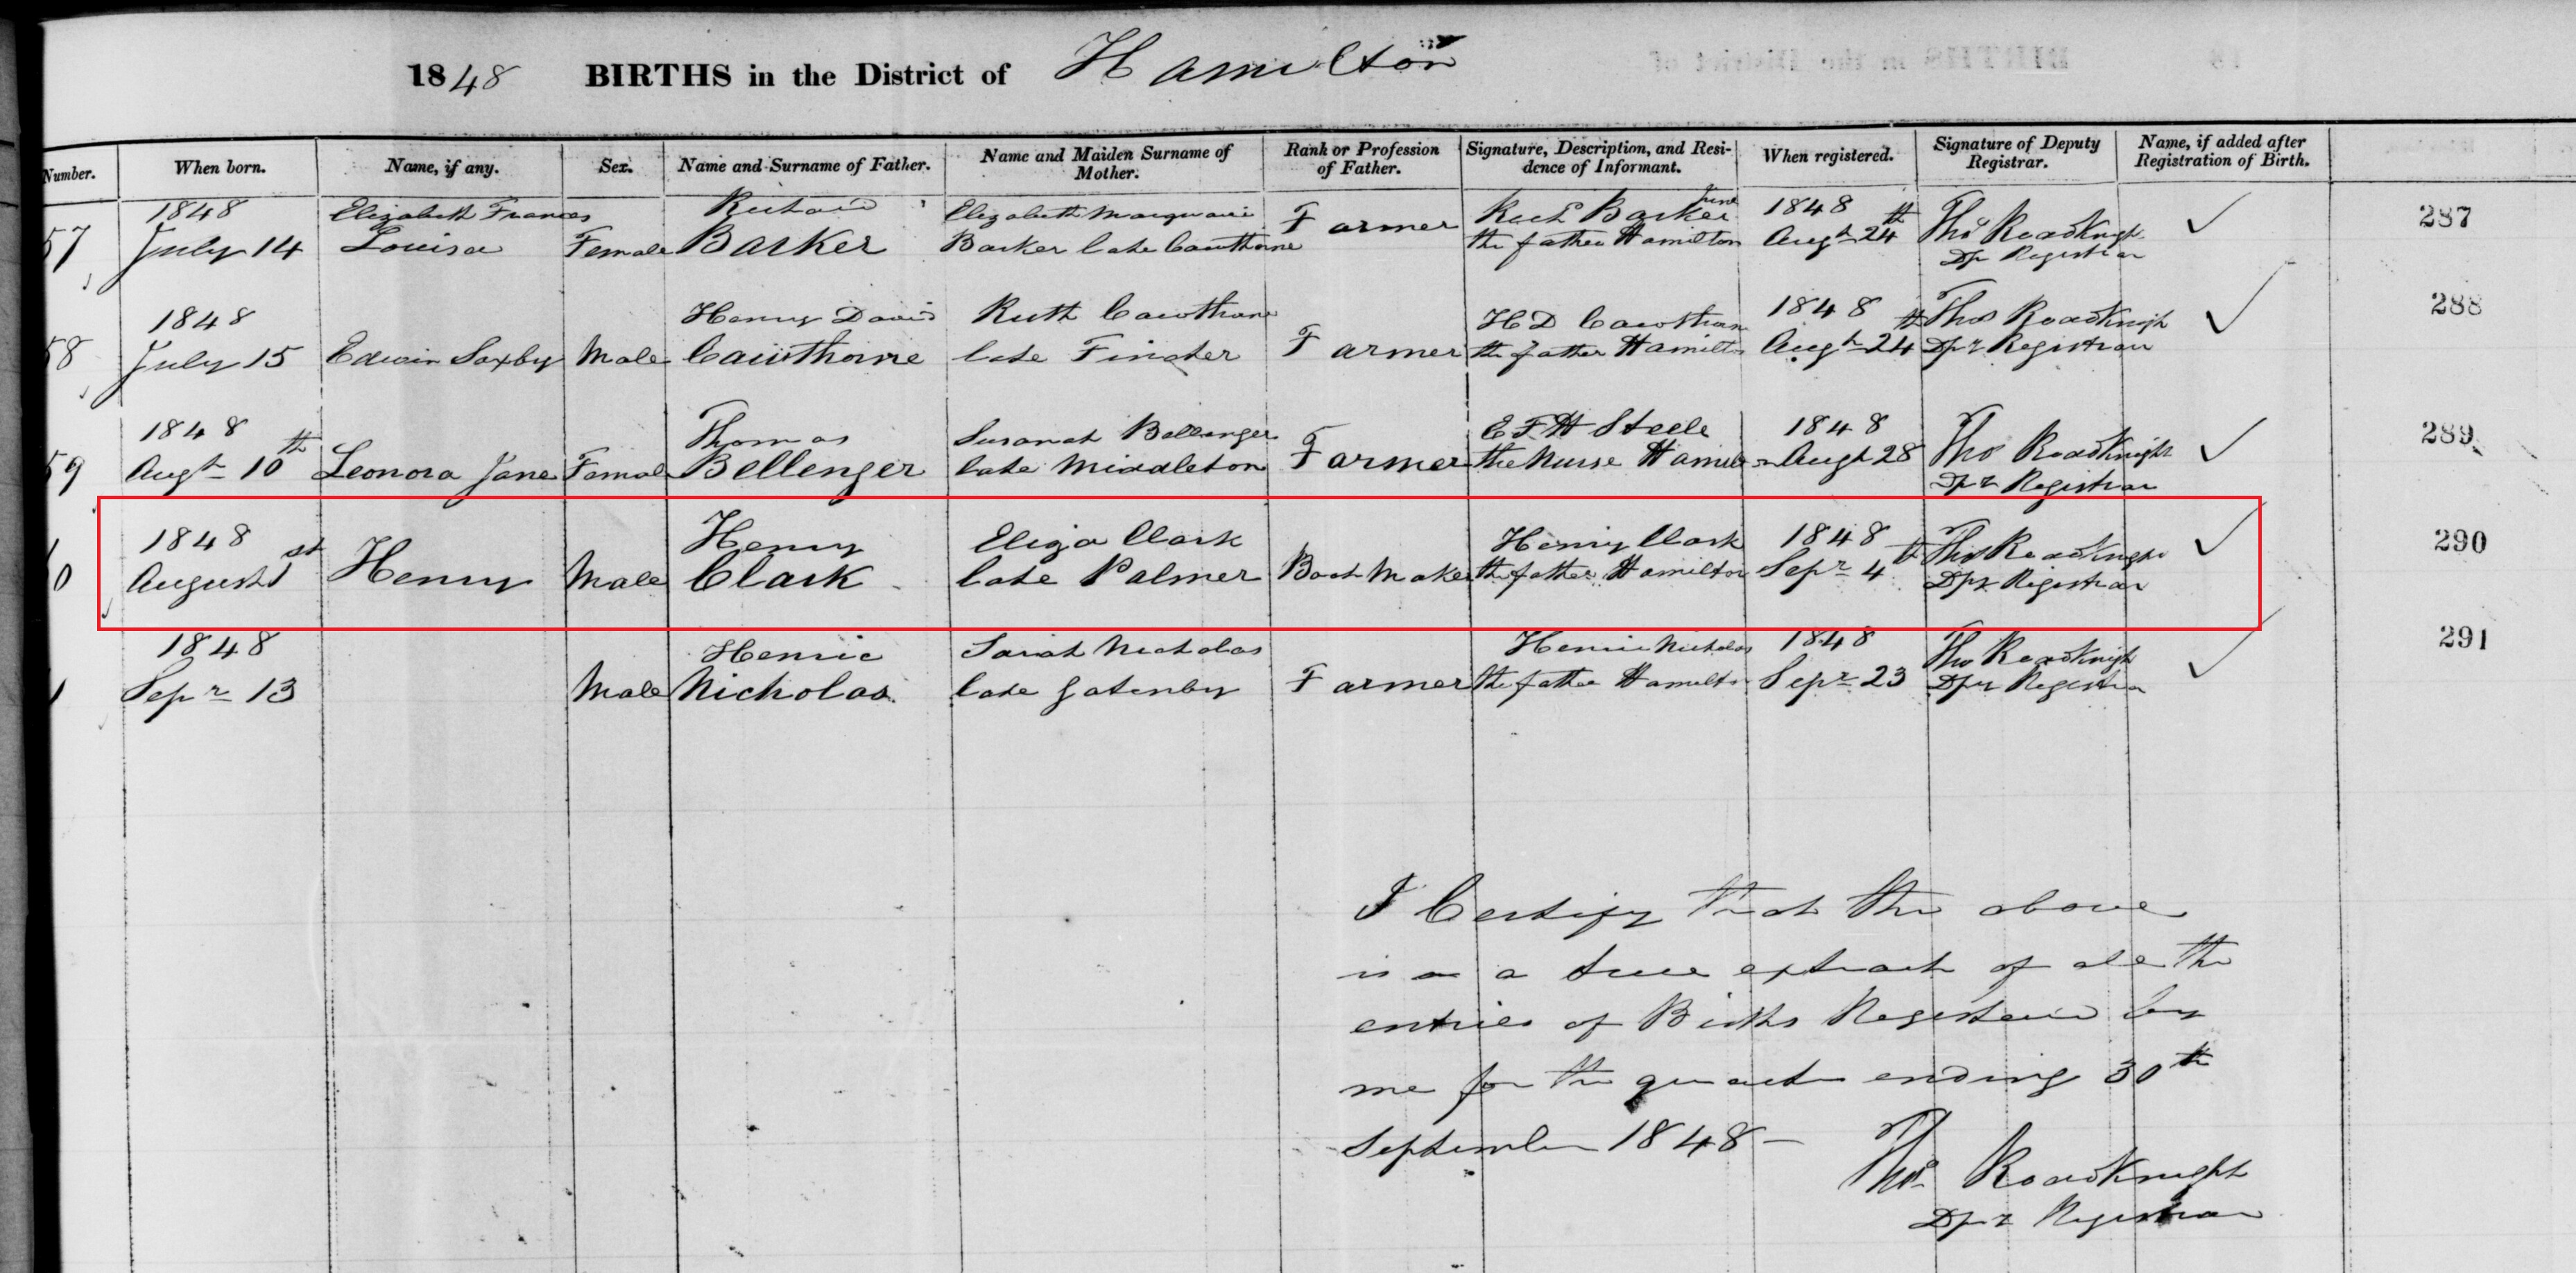 1848 BIRTHS in the District of Hamilton
Number. When born. Name, if any. Sex. Name and Surname of Father. Name and Maiden Surname of Mother. Rank or Profession of Father. Signature, Description, and Residence of Informant. When registered. Signature of Deputy Registrar. Name, if added after Registration of Birth.
1848 Elizabeth Frances Richard Elizabeth Macquarie Richd Barker Junr 1848 Thos RoadKnight 287
57 July 14 Louisa Female Barker Barker late Cawthorne Farmer the father Hamilton Augt 24th Dpr Registrar
1848 Henry David Ruth Cawthorne H D Cawthorne 1848 Thos RoadKnight 288
58 July 15 Edwin Saxby Male Cawthorne late Fincher Farmer the father Hamilton Augt 24th Dpr Registrar
1848 Thomas Susanah Bellenger E F H Steele 1848 Thos RoadKnight 289
59 Augt 10th Leonora Jane Female Bellenger late Middleton Farmer the Nurse Hamilton Augt 28 Dpr Registrar
1848 Henry Eliza Clark Henry Clark 1848 Thos RoadKnight 290
0 August 1st Henry Male Clark late Palmer Boot Maker the father Hamilton Sepr 4th Dpr Registrar
1848 Henrie Sarah Nicholas Henrie Nicholas 1848 Thos RoadKnight 291
1 Sepr 13 Male Nicholas late Gatenby Farmer the father Hamilton Sepr 23 Dpr Registrar
I Certify that the above
is a true extract of all the
entries of Births Registered by
me for the quarter ending 30th
September 1848 –
Thos RoadKnight
Dpr Registrar